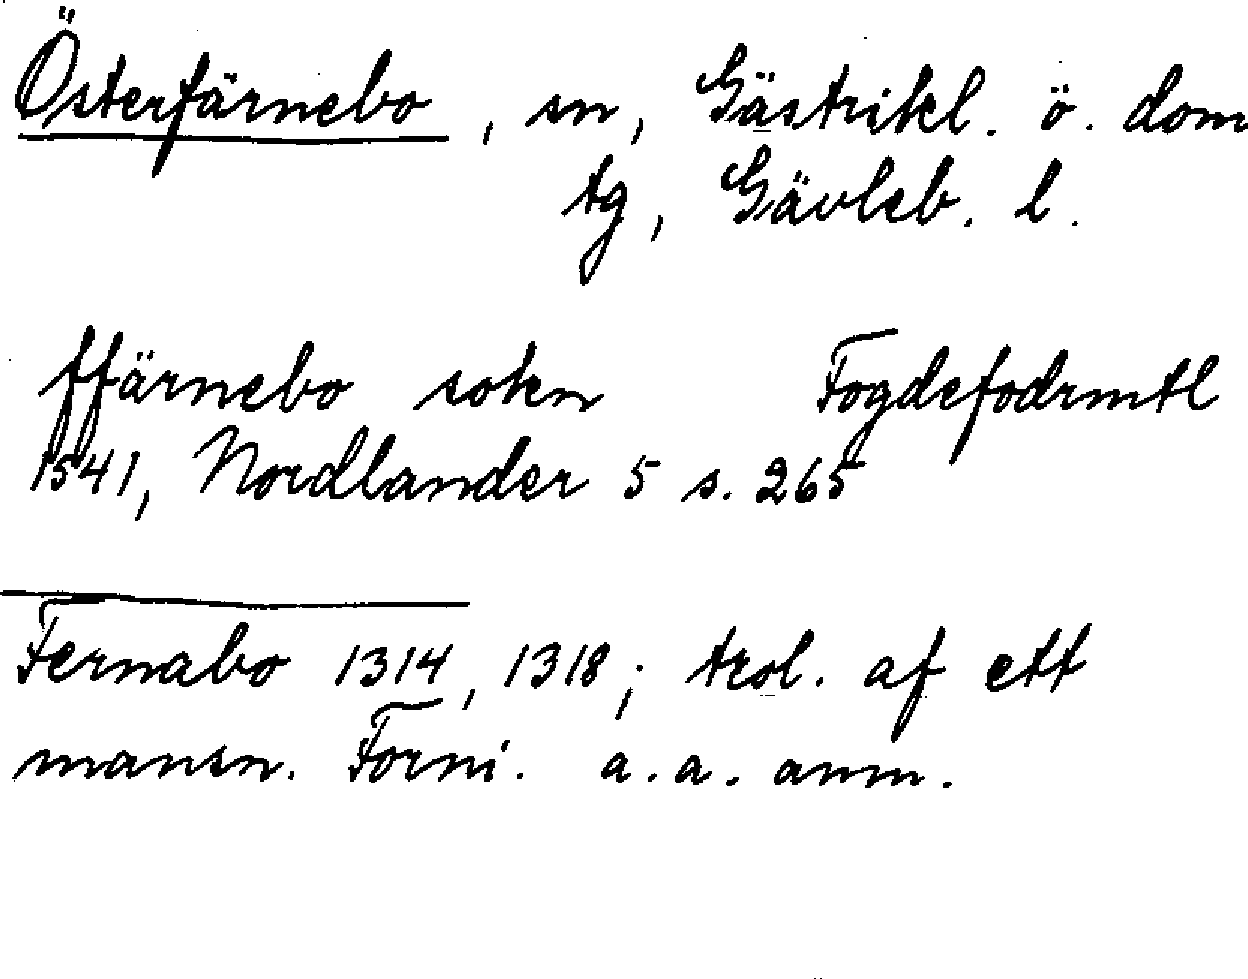 Österfärnebo, sn, Gästrikl. ö. dom
tg, Gävleb. l.
ffärnebo sokn Fogdefodrmtl
1541, Nordlander 5 s. 265
Fernabo 1314, 1318; trol. af ett
mansn. Forni. a.a. anm.